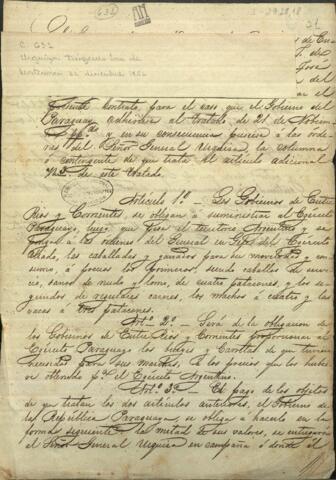 C. 632
22 diciembre 1850
siguiente contrato para el caso que el Gobierno del
Paraguay adhiriera al tratado de 21 de Noviem
y en su consecuencia pusiera á las orde
nes del Señor General Urquiza, la columna
ó contingente de que trata el artículo adicional
de este tratado.
Artículo 1º Los Gobiernos de Entre
Rios y Corrientes se obligan á suministrar al Ejército
Paraguayo, luego que pise el territorio Argentino y se
ponga á las órdenes del General en Gefe del Ejército
Aliado, las caballadas y ganados para su movilidad y con
sumo, á precios los primeros, siendo caballos de servi
cio, sanos de nudo y lomo, de cuatro patacones, y los se
gundos de regulares carnes, los machos á cuatro y las
vacas á tres patacones.
Artº 2º Será de la obligacion de
los Gobiernos de Entre Rios y Corrientes proporcionar al
Ejército Paraguayo los bueyes y carretas de que tuviere
necesidad para sus marchas, á los precios que los hubie
se obtenido pª el Ejército Argentino.
Artº 3º El pago de los objetos
de que tratan los dos artículos anteriores, el Gobierno de
la República Paraguaya se obliga á hacerlo en la
forma siguiente: la mitad de sus valores, se entregará
el Señor General Urquiza en campaña ó donde él